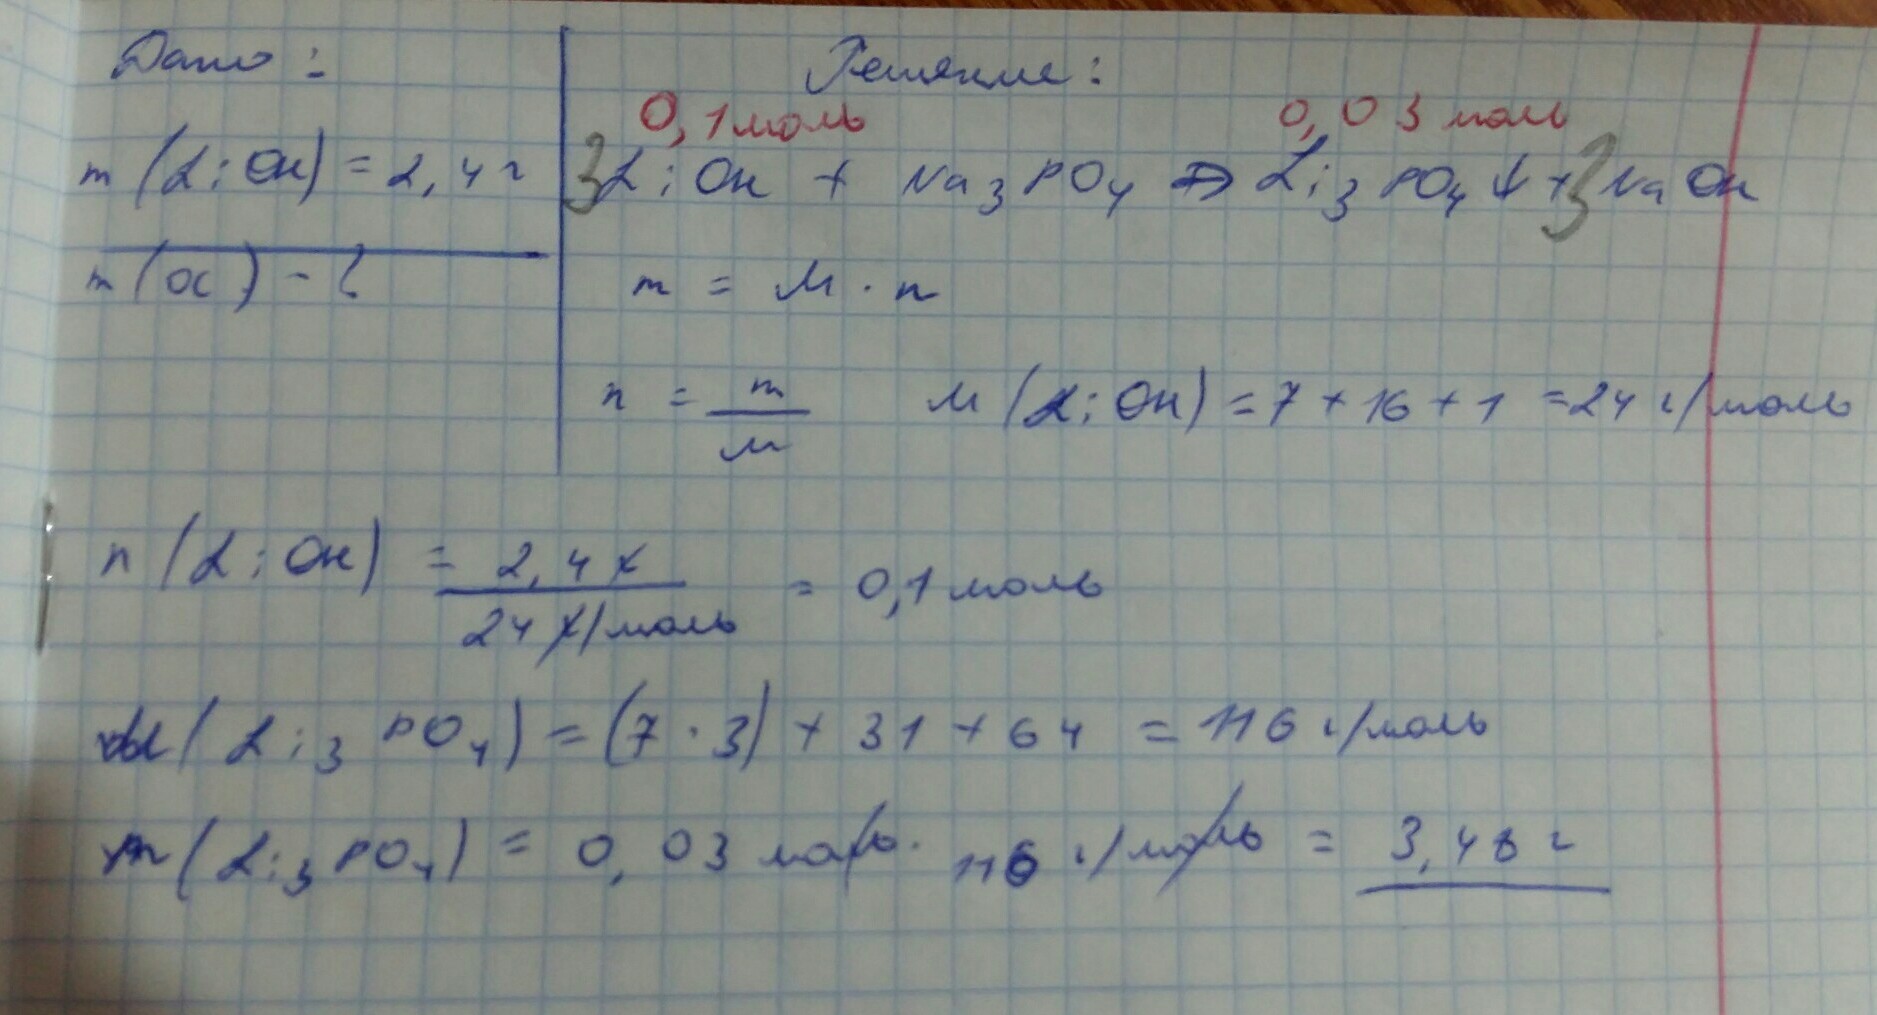 Дано: Решение:
0,1 моль 0,03 моль
m (LiOH) = 2,4 г 3LiOH + Na₃PO₄ ⇒ Li₃PO₄↓ + 3NaOH
m (ос) - ? m = M · n
n = m/M M (LiOH) = 7 + 16 + 1 = 24 г/моль
n (LiOH) = 2,4 г / 24 г/моль = 0,1 моль
M (Li₃PO₄) = (7 · 3) + 31 + 64 = 116 г/моль
m (Li₃PO₄) = 0,03 моль · 116 г/моль = 3,48 г